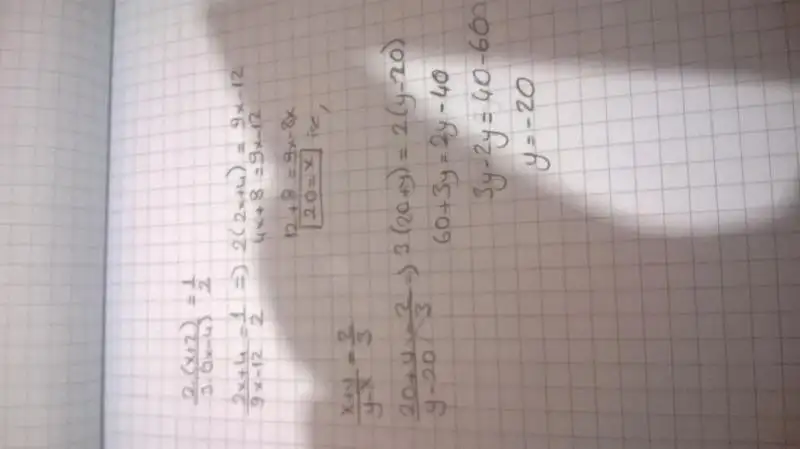 2.(x+2)/3.(3x-4) = 1/2
2x+4/9x-12 = 1/2 => 2(2x+4) = 9x-12
4x+8 = 9x-12
12+8 = 9x-8x
20=x ise,
x+y/y-x = 2/3
20+y/y-20 = 2/3 => 3(20+y) = 2(y-20)
60+3y = 2y-40
3y-2y = 40-60
y = -20